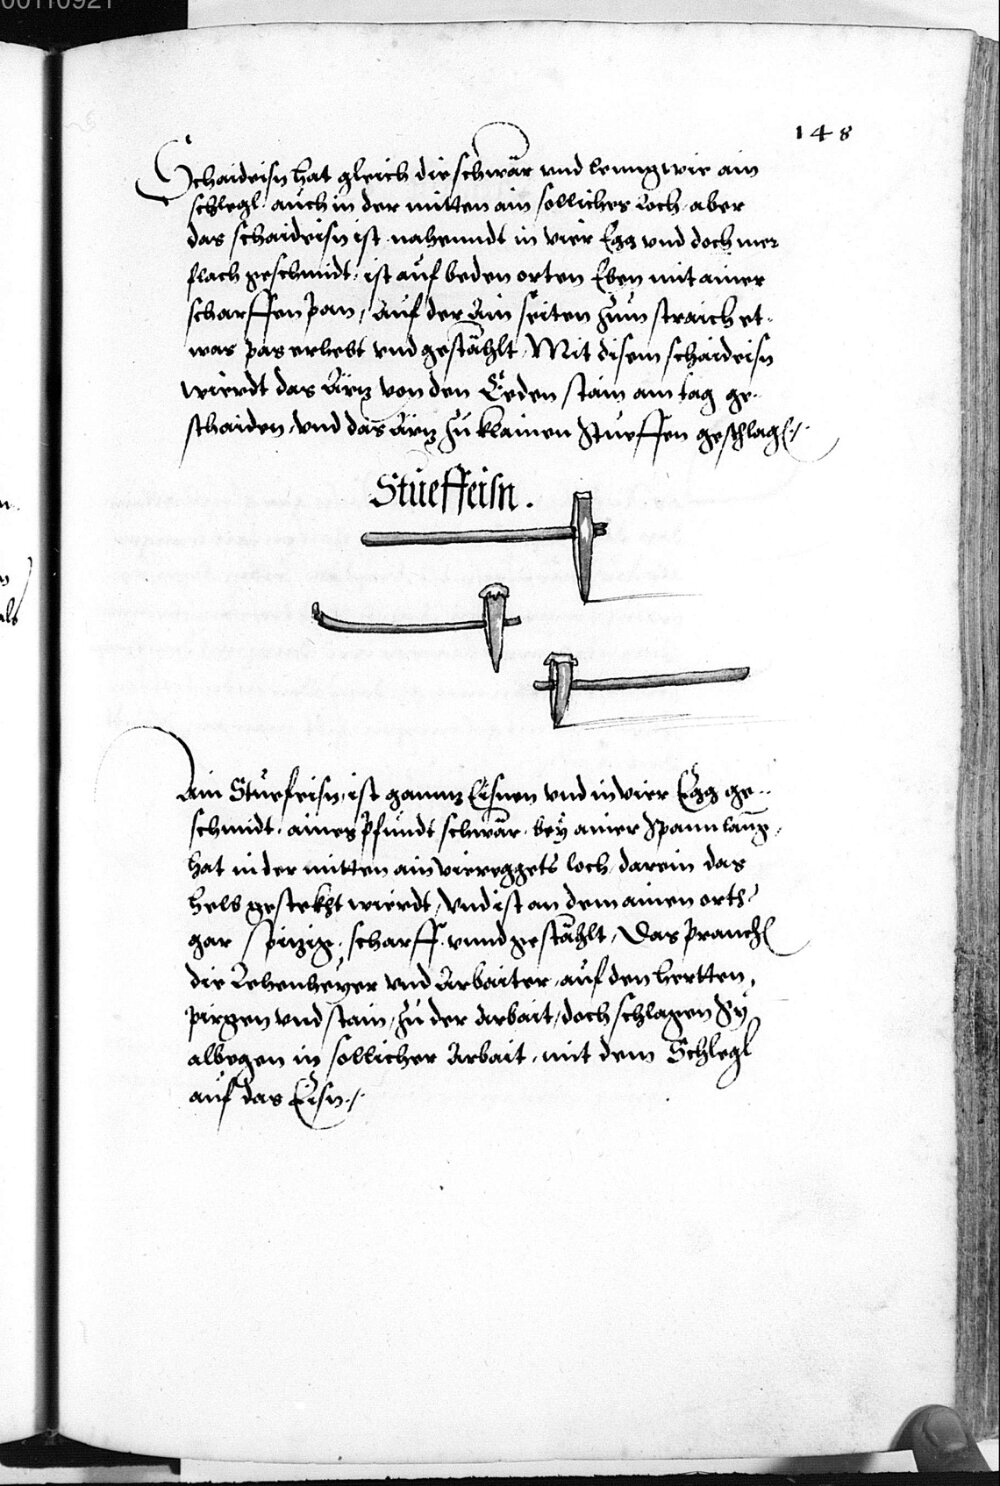 00110921
148
Schaideisn hat gleich die schwär vnd lenng wie ain
schlegl. auch in der mitten ain solliches Loch. aber
das schaideisn ist nahenndt in vier Egg vnd doch mer
flach geschmidt, ist auf beden orten Eben mit ainer
scharffen pan, Auf der Ain seiten zum straich et-
was pas erhebt vnd gestählt, Mit disem schaideisn
wierdt das Ärz von den Erden stain am tag ge-
schaiden, vnd das Ärz zu klainen Stueffen geschlagen ./.
Stüeffeisn.
Ain Stüefeisn, ist gannz Eisnen vnd in vier Egg ge-
schmidt. aines pfundt schwär. bey ainer Spann lanng,
hat in der mitten ain viereggets loch, darein das
helb gestekht wierdt, vnd ist an dem ainen orth
gar spizig, scharff vnnd gestählt, Das prauchen
die Lehenheyer vnd Arbaiter, auf den hertten,
pirgen vnd stain, zu der Arbait, doch schlagen Sy
albegen in sollicher Arbait, mit dem Schlegl
auf das Eisn ./.